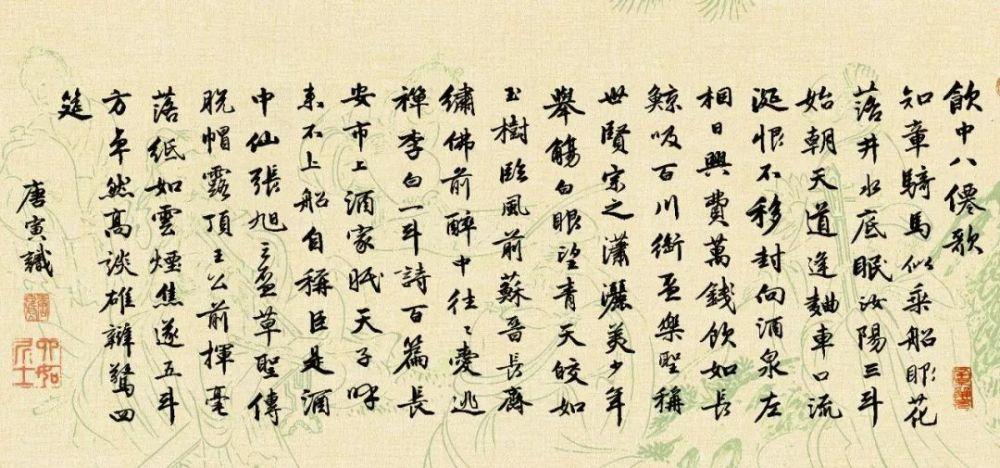 飲中八僊歌
知章騎馬似乘船眼花
落井水底眠汝陽三斗
始朝天道逢麯車口流
涎恨不移封向酒泉左
相日興費萬錢飲如長
鯨吸百川銜盃樂聖稱
世賢宗之瀟灑美少年
舉觴白眼望青天皎如
玉樹臨風前蘇晉長齋
繡佛前醉中往〻愛逃
禪李白一斗詩百篇長
安市上酒家眠天子呼
来不上船自稱臣是酒
中仙張旭三盃草聖傳
脫帽露頂王公前揮毫
落紙如雲煙焦遂五斗
方卓然高談雄辯驚四
筵
唐寅識
六如居士